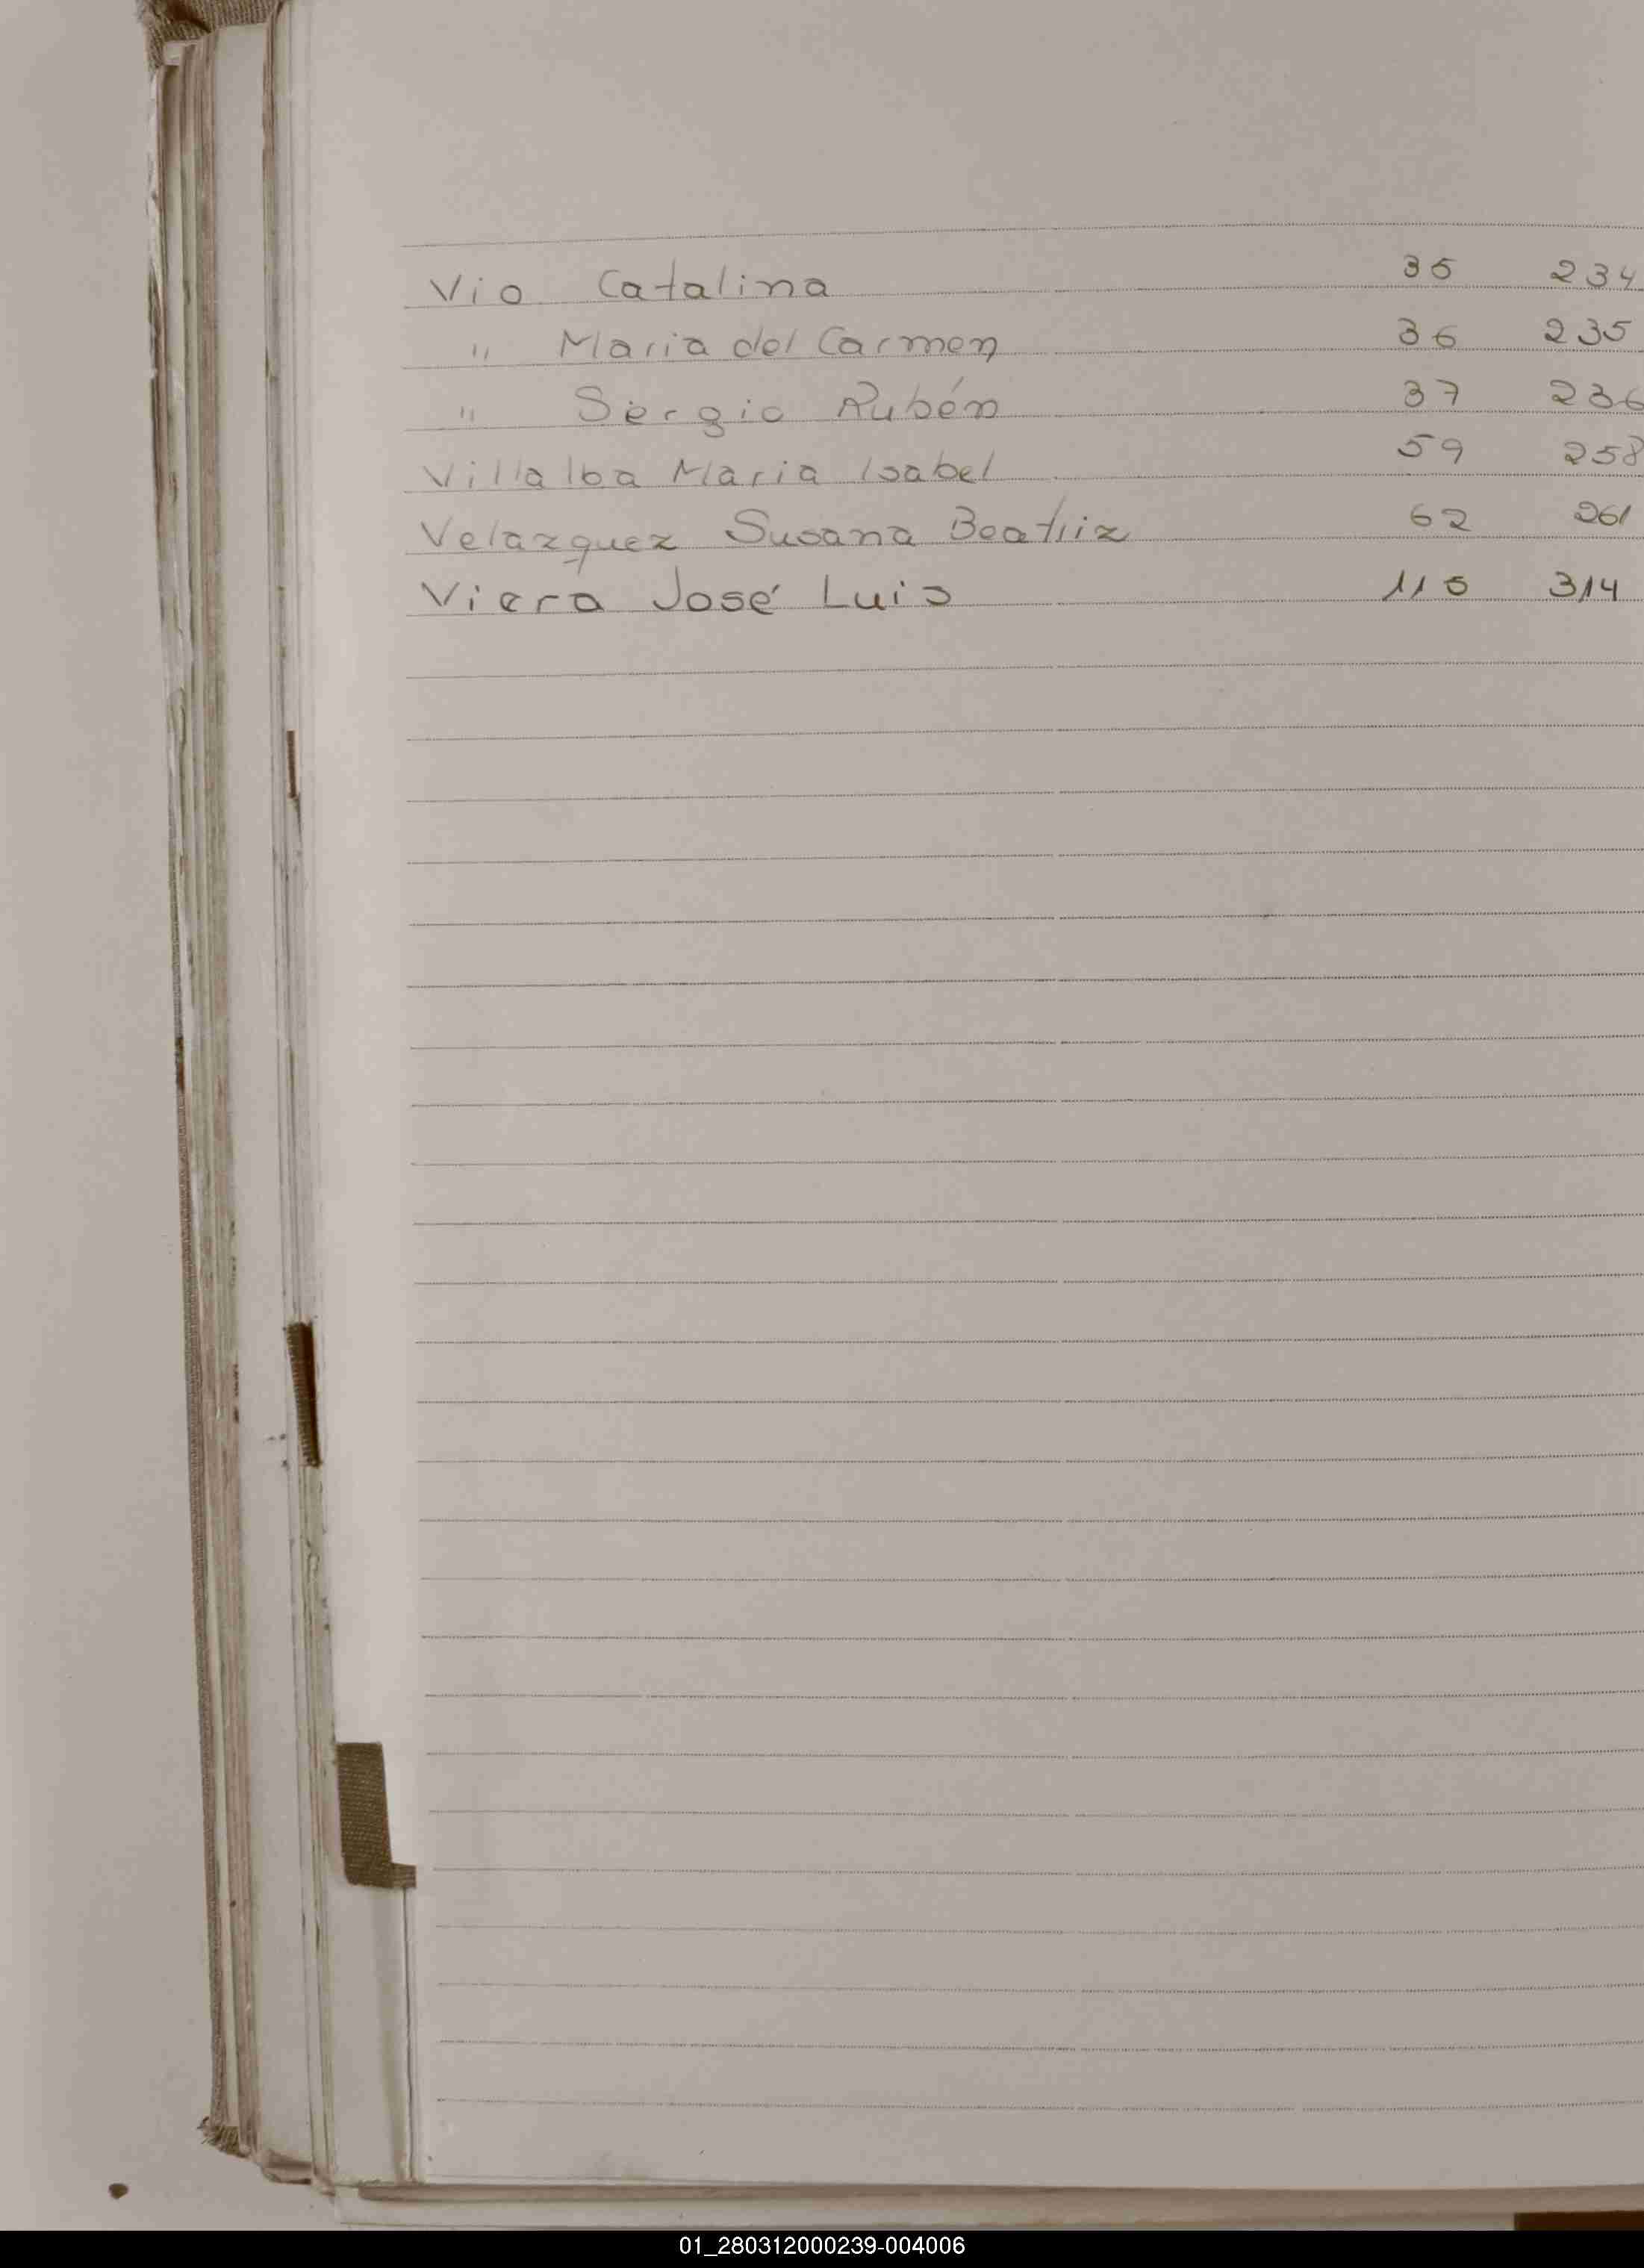 Vio Catalina 35 234
" Maria del Carmen 36 235
" Sergio Rubén 37 236
Villalba Maria Isabel 59 258
Velazquez Susana Beatriz 62 261
Viera José Luis 115 314
01_280312000239-004006